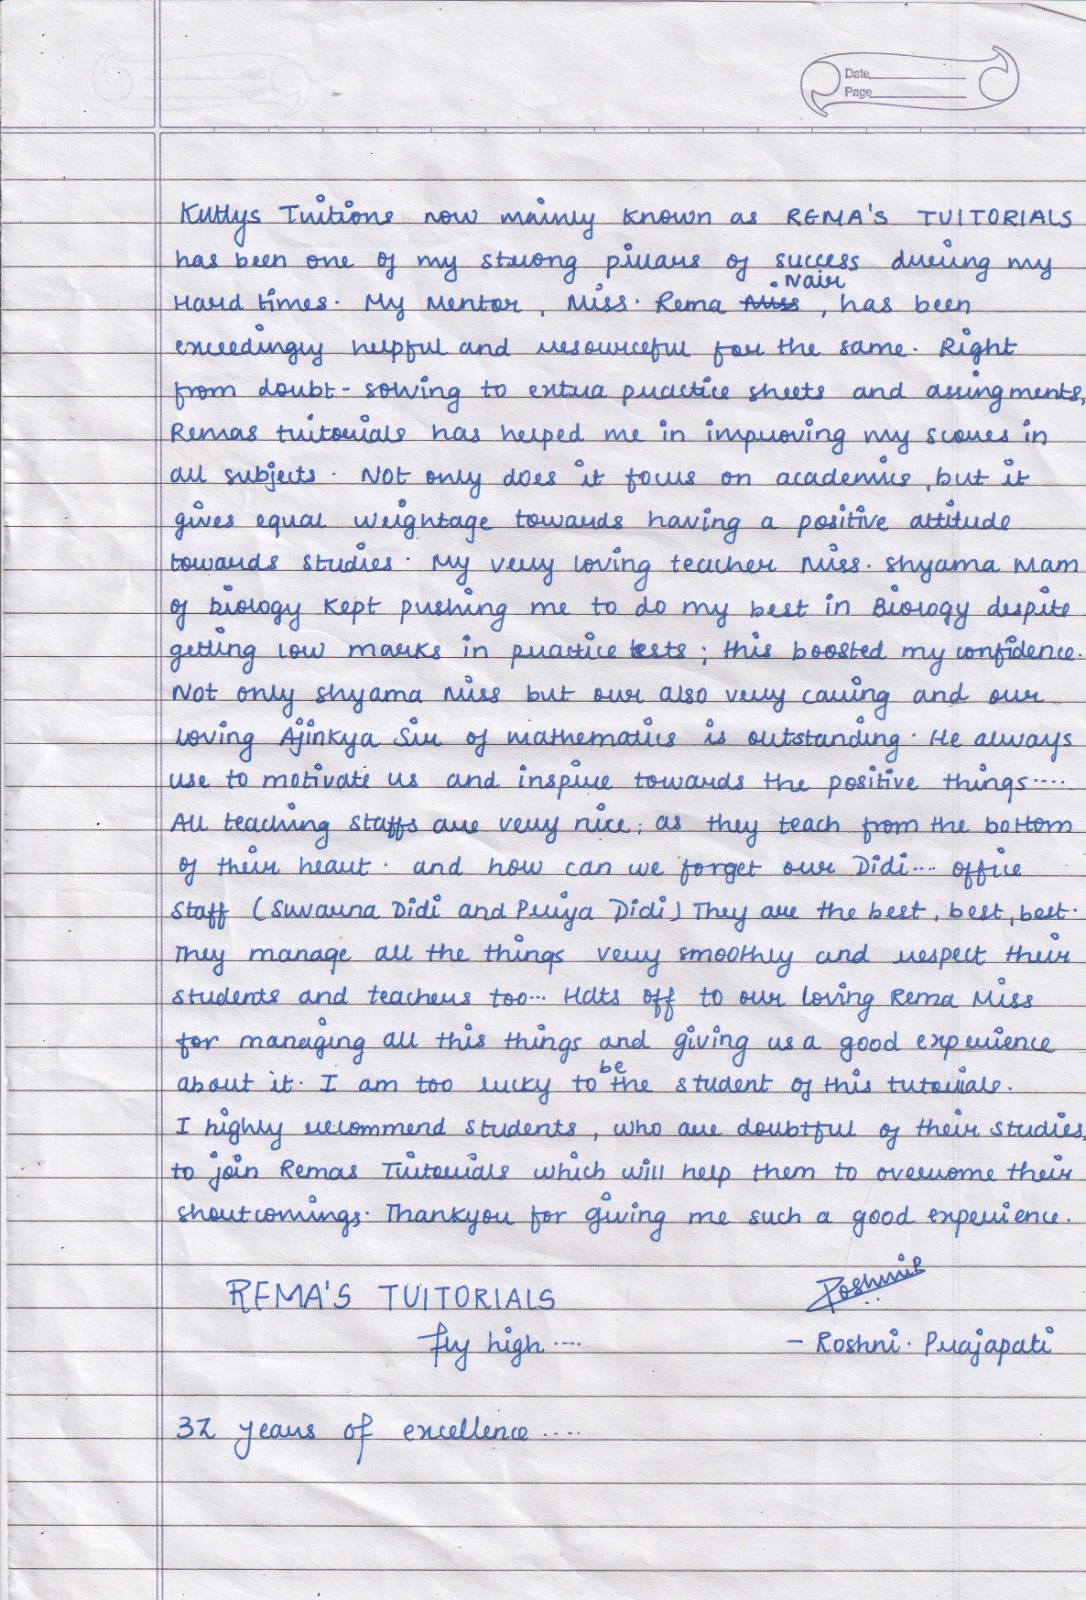 Date
Page
Kuttys Tuitions now mainly known as REMA'S TUITORIALS
has been one of my strong pillars of success during my
Hard times. My Mentor, Miss. Rema Nair, has been
exceedingly helpful and resourceful for the same. Right
from doubt-sowing to extra practice sheets and assingments,
Remas tuitorials has helped me in improving my scores in
all subjects. Not only does it focus on academics, but it
gives equal weightage towards having a positive attitude
towards studies. My very loving teacher Miss. Shyama Mam
of biology kept pushing me to do my best in Biology despite
getting low marks in practice tests; this boosted my confidence.
Not only shyama Miss but our also very caring and our
loving Ajinkya Sir of mathematics is outstanding. He always
use to motivate us and inspire towards the positive things....
All teaching staffs are very nice; as they teach from the bottom
of their heart. and how can we forget our Didi... office
Staff (Suvarna Didi and Priya Didi) They are the best, best, best.
They manage all the things very smoothly and respect their
students and teachers too... Hats off to our loving Rema Miss
for managing all this things and giving us a good experience
about it. I am too lucky to be the student of this tutorials.
I highly recommend students, who are doubtful of their studies,
to join Remas Tuitorials which will help them to overcome their
shortcomings. Thankyou for giving me such a good experience.
Roshni
REMA'S TUITORIALS
fly high ....
- Roshni. Prajapati
32 years of excellence ....